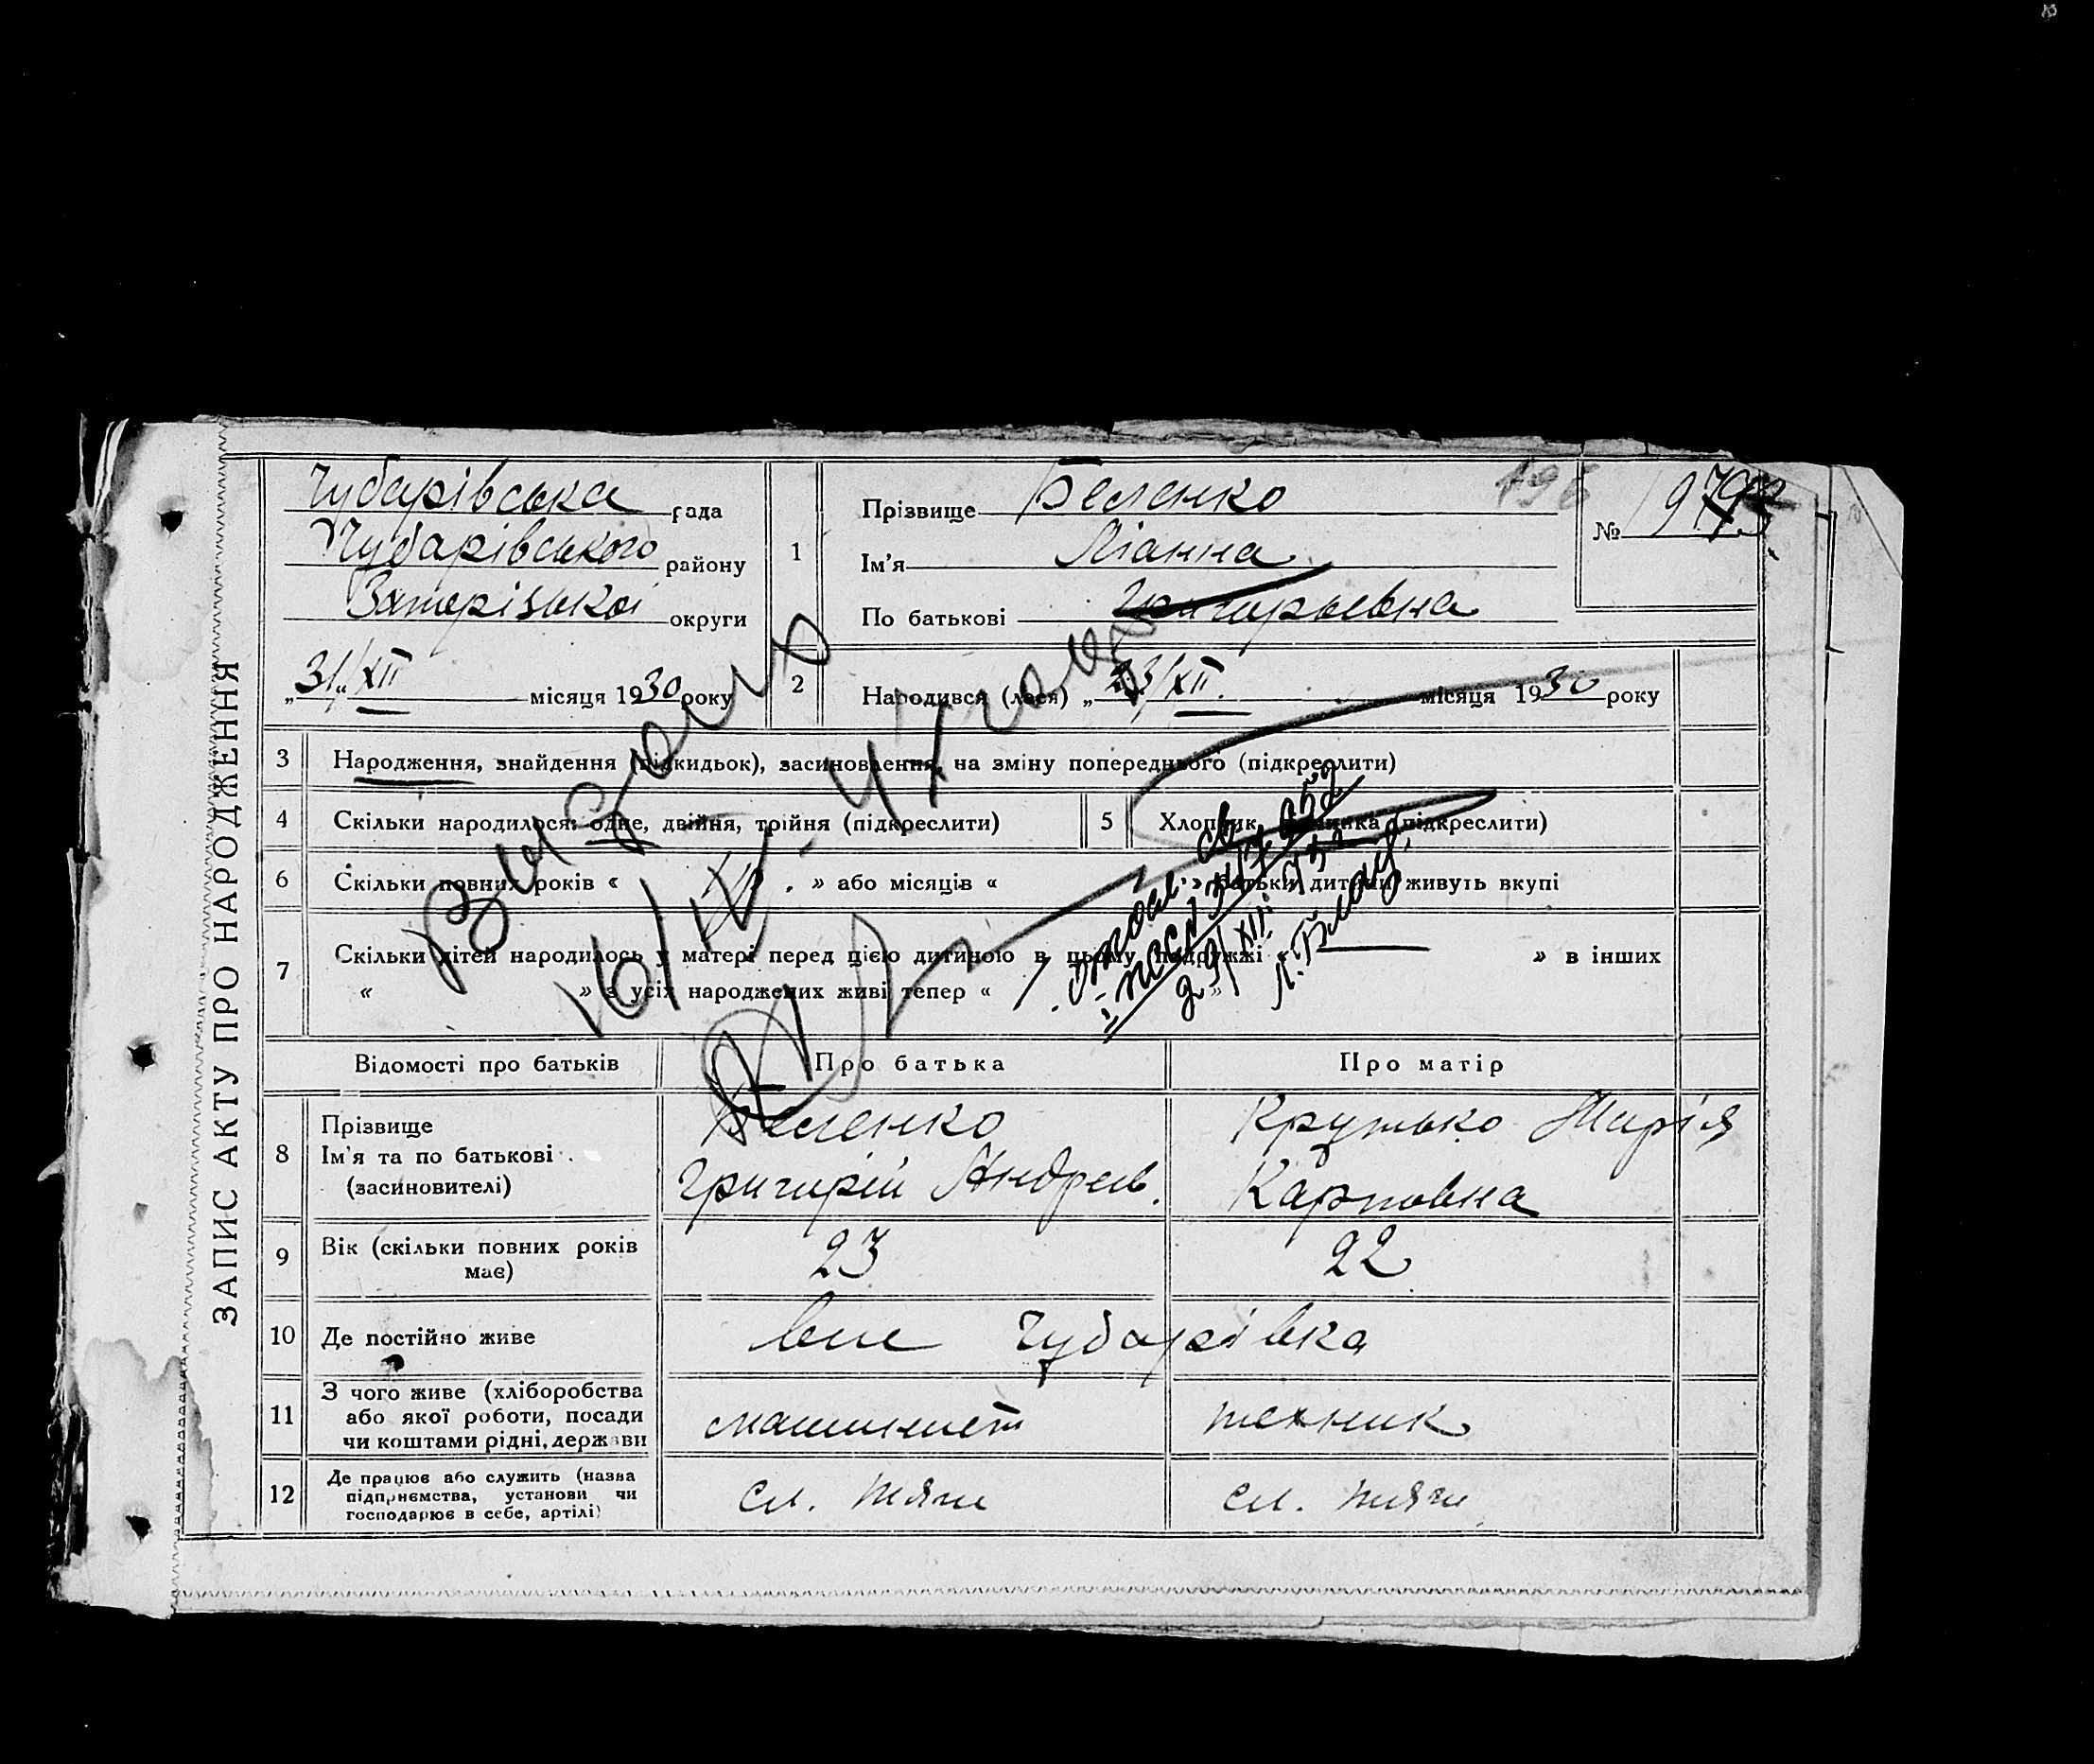 ЗАПИС АКТУ ПРО НАРОДЖЕННЯ
Чубарівська рада
Чубарівського району
Запорізької округи
„31„ XII місяця 1930 року
1
Прізвище Беленко
Ім'я Ліанна
По батькові Григорьевна
196
№ 19
2
Народився (лася) „23/XII. місяця 1930 року
3 Народження, знайдення (підкидьок), засиновлення, на зміну попереднього (підкреслити)
4 Скільки народилося: одне, двійня, трійня (підкреслити)
5 Хлопчик, дівчинка (підкреслити)
6 Скільки повних років « » або місяців « » батьки дитини живуть вкупі
7 Скільки дітей народилось у матері перед цією дитиною в цьому подружжі « — » в інших
« » з усіх народжених живі тепер « »
Відомості про батьків Про батька Про матір
8 Прізвище
Ім'я та по батькові
(засиновителі)
Беленко
Григорій Андреев.
Крутько Марія
Карповна
9 Вік (скільки повних років має) 23 22
10 Де постійно живе Чубарівка
11 З чого живе (хліборобства
або якої роботи, посади
чи коштами рідні, держави
машинист технік
12 Де працює або служить (назва
підприємства, установи чи
господарює в себе, артілі)
сл. тяги сл. тяги